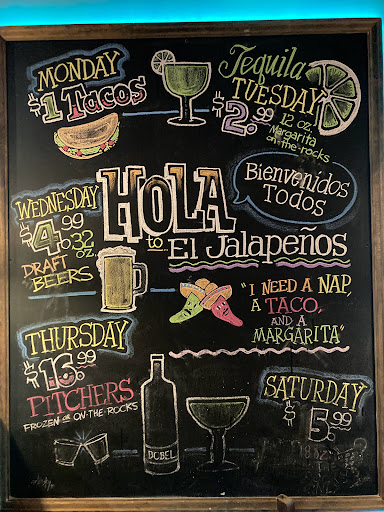 MONDAY
$1 Tacos
Tequila
TUESDAY
$2.99
12 oz.
Margarita
on-the-rocks
WEDNESDAY
$4.99
32
oz.
DRAFT
BEERS
HOLA
to...
El Jalapeños
Bienvenidos
Todos
"I NEED A NAP,
A TACO,
AND A
MARGARITA"
THURSDAY
$16.99
PITCHERS
FROZEN OR ON-THE-ROCKS
DOBEL
SATURDAY
$5.99